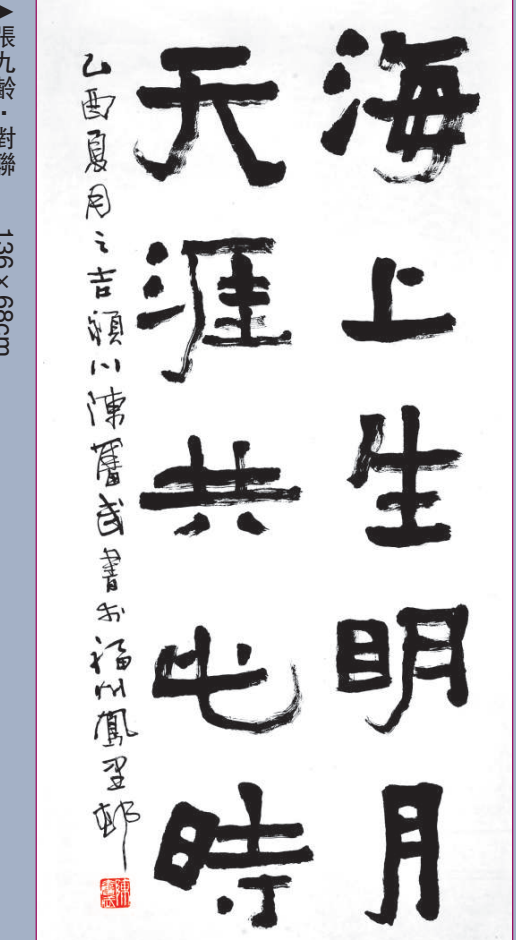 海上生明月
天涯共此時
乙酉夏月之吉潁川陳奮武書於福州鳳里邨
▶張九齡·對聯 136×68cm